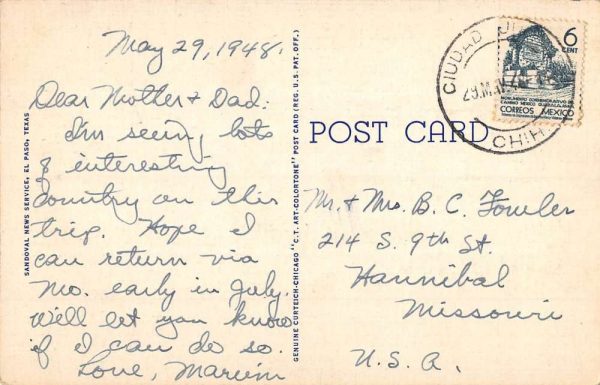 May 29, 1948.
Dear Mother & Dad:
I'm seeing lots
of interesting
country on this
trip. Hope I
can return via
Mo. early in July.
Will let you know
if I can do so.
Love,
SANDOVAL NEWS SERVICE, EL PASO, TEXAS
GENUINE CURTEICH-CHICAGO "C.T. ART-COLORTONE" POST CARD (REG. U.S. PAT. OFF.)
POST CARD
CIUDAD
CHIH
6
CENT
CORREOS MEXICO
Mr. & Mrs. B. C. Fowler
214 S. 9th St.
Hannibal
Missouri
U.S.A.